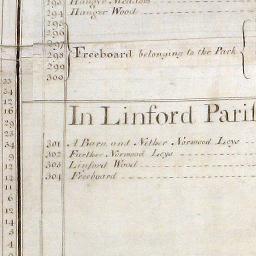 293 Hanger Meadow
294 Hanger Wood
295
296
297
298 Freeboard belonging to the Park
299
300
In Linford Paris
301 A Barn and Nither Norwood Leys
302 Further Norwood Leys
303 Linford Wood
304 Freeboard